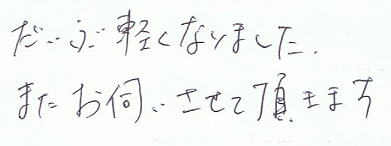 だいぶ軽くなりました.
またお伺いさせて頂きます